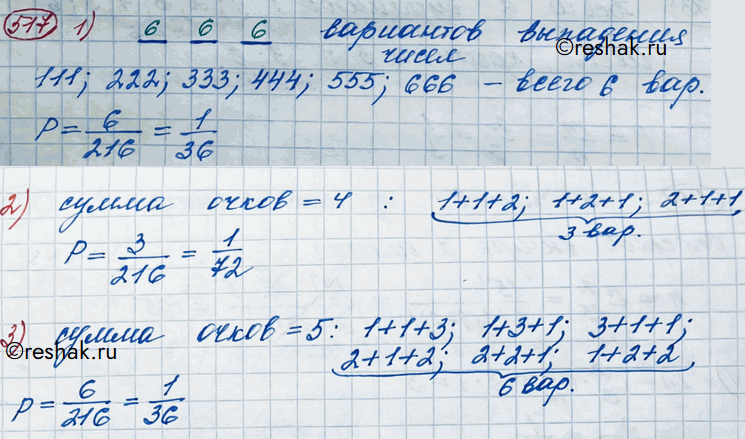 517 1) 6 6 6 вариантов выпадения
чисел
©reshak.ru
111; 222; 333; 444; 555; 666 – всего 6 вар.
P = 6/216 = 1/36
2) сумма очков = 4 : 1+1+2; 1+2+1; 2+1+1,
3 вар.
P = 3/216 = 1/72
3) сумма очков = 5: 1+1+3; 1+3+1; 3+1+1;
©reshak.ru
2+1+2; 2+2+1; 1+2+2,
6 вар.
P = 6/216 = 1/36